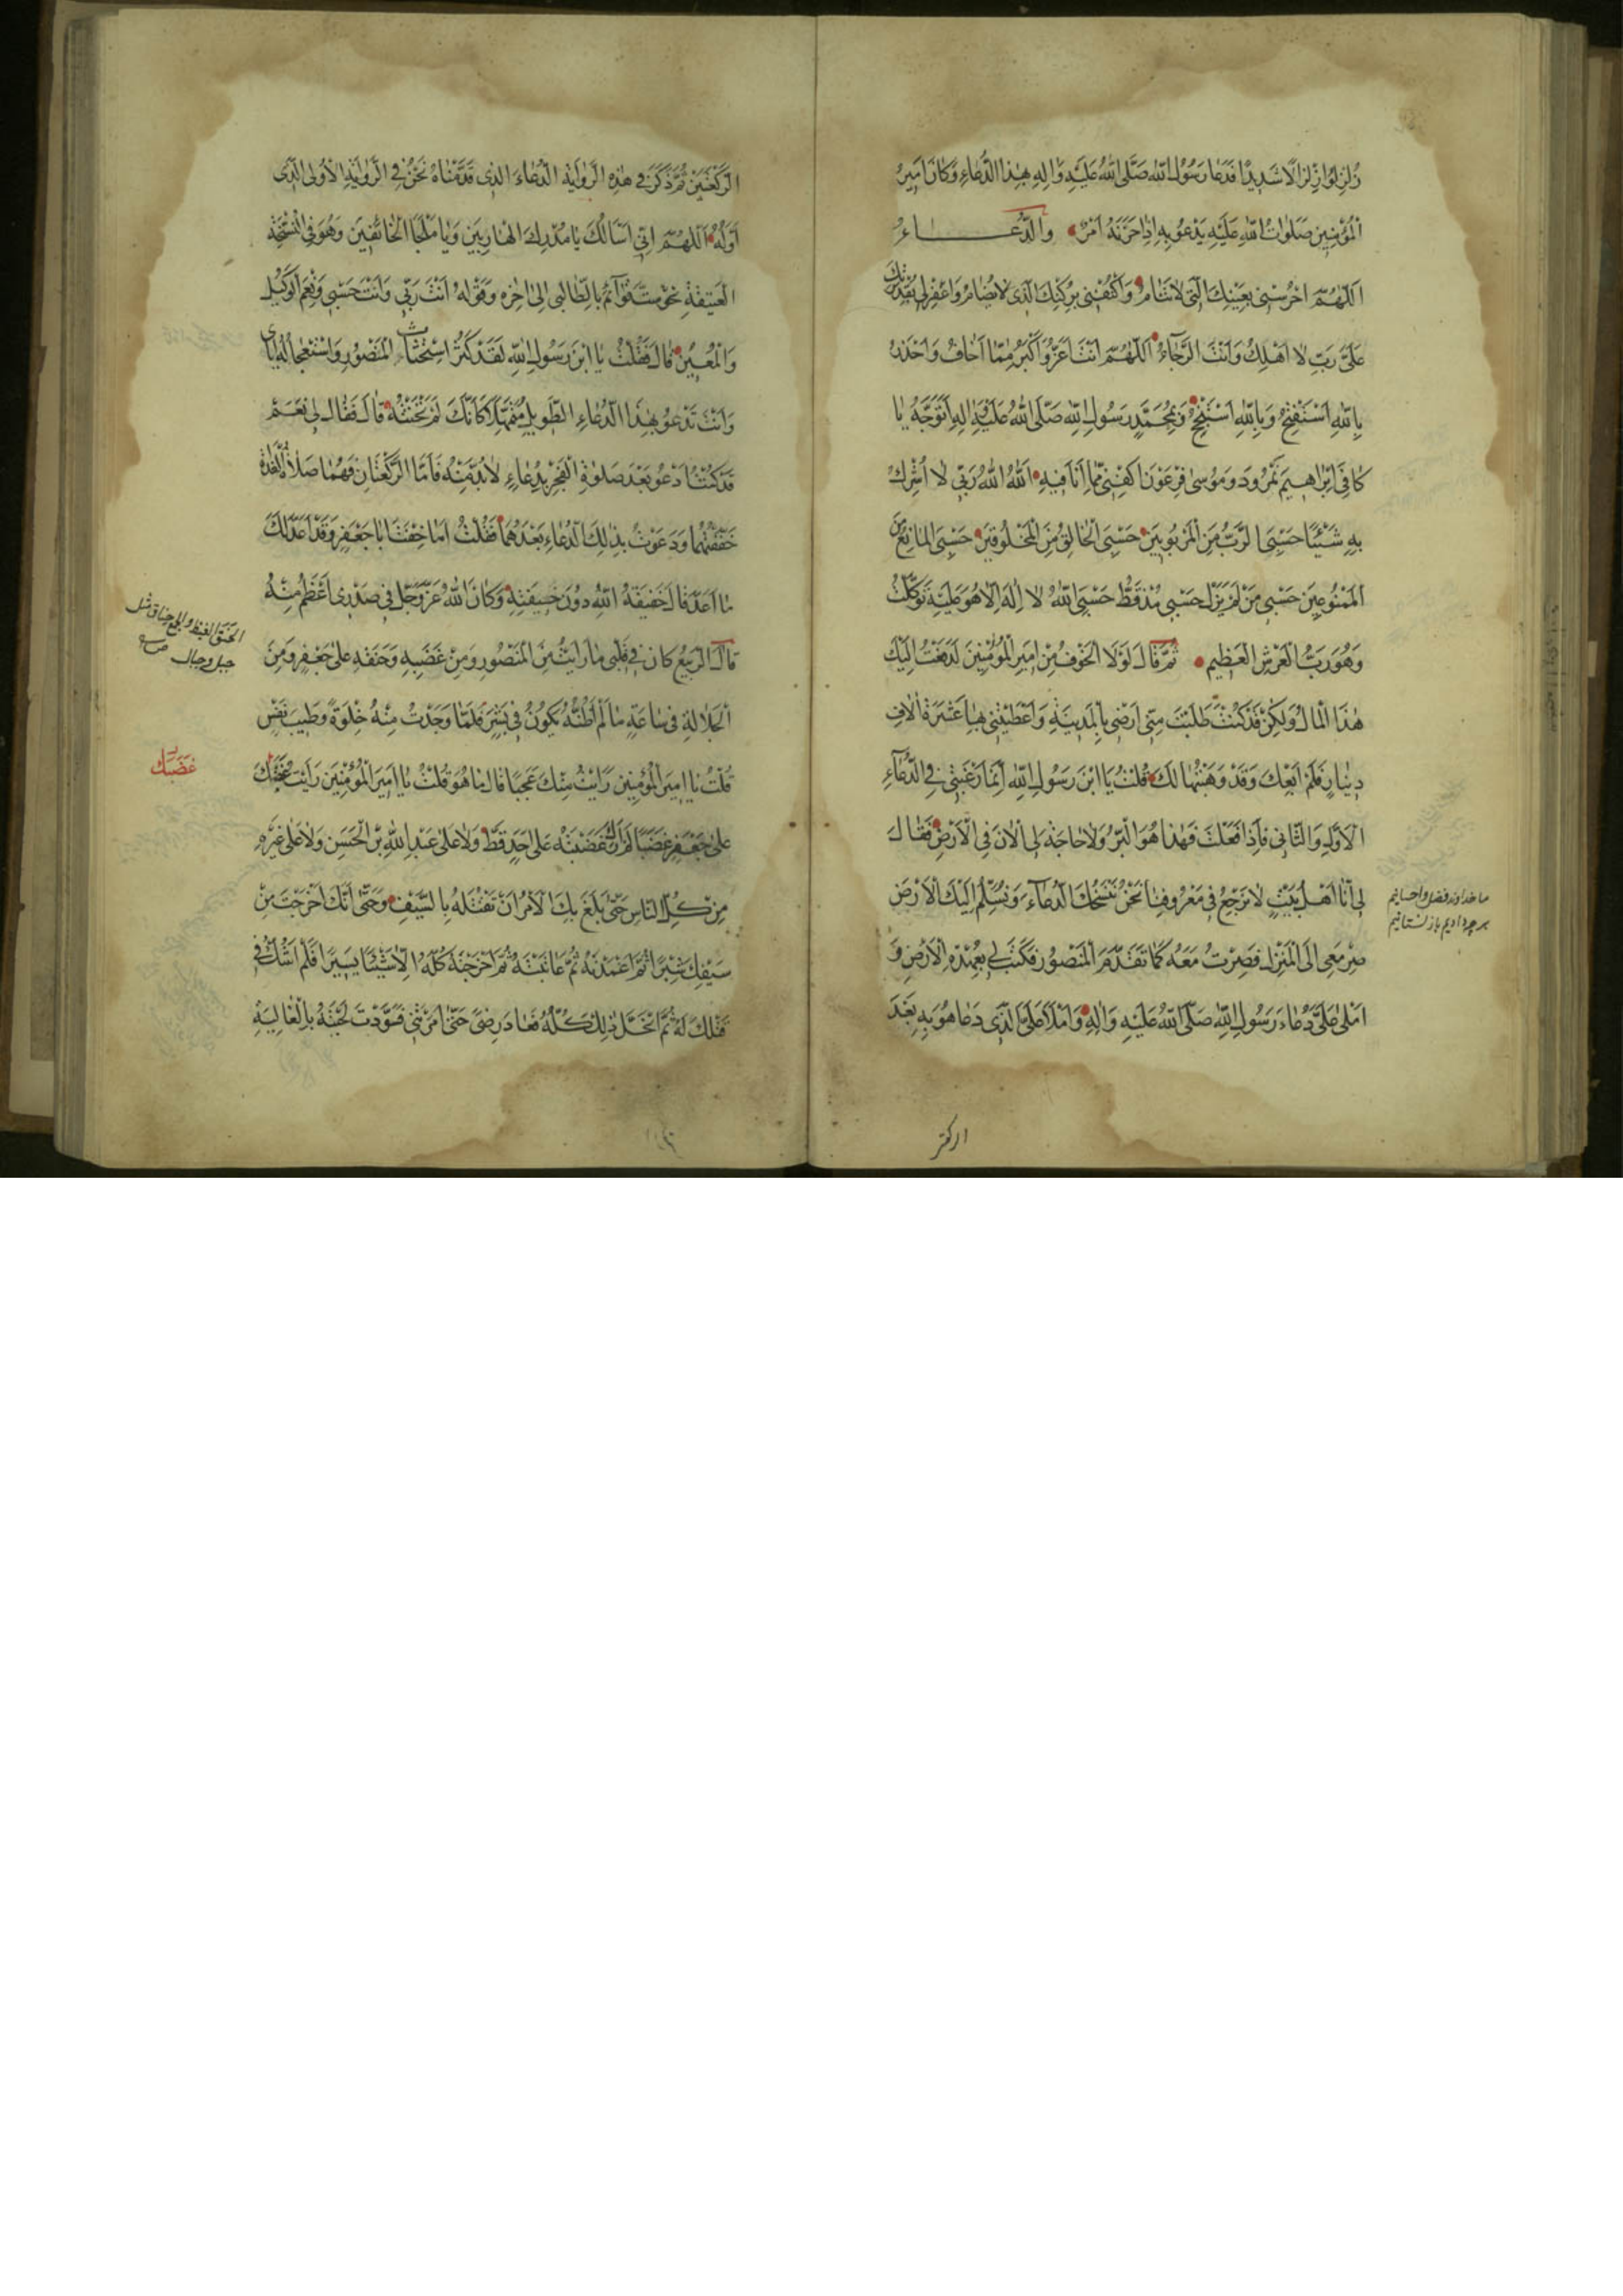 زُلْزِلُوا زِلْزَالًا شَدِيدًا فَدَعَا رَسُولُ اللهِ صَلَّى اللهُ عَلَيْهِ وَاٰلِهِ بِهٰذَا الدُّعَاءِ وَكَانَ اَمِيرُ
الْمُؤْمِنِينَ صَلَوَاتُ اللهِ عَلَيْهِ يَدْعُو بِهِ اِذَا حَزَنَهُ اَمْرٌ وَالدُّعَاءُ
اَللّٰهُمَّ احْرُسْنِي بِعَيْنِكَ الَّتِي لَا تَنَامُ وَاكْنُفْنِي بِرُكْنِكَ الَّذِي لَا يُضَامُ وَاغْفِرْ لِي بِقُدْرَتِكَ
عَلَيَّ رَبِّ لَا اَهْلِكُ وَاَنْتَ الرَّجَاءُ اَللّٰهُمَّ اَنْتَ اَعَزُّ وَاَكْبَرُ مِمَّا اَخَافُ وَاَحْذَرُ
بِاللهِ اَسْتَفْتِحُ وَبِاللهِ اَسْتَنْجِحُ وَبِمُحَمَّدٍ رَسُولِ اللهِ صَلَّى اللهُ عَلَيْهِ وَاٰلِهِ اَتَوَجَّهُ يَا
كَافِيَ اِبْرَاهِيمَ نَمْرُودَ وَمُوسَى فِرْعَوْنَ اكْفِنِي مِمَّا اَنَا فِيهِ اَللهُ اَللهُ رَبِّي لَا اُشْرِكُ
بِهِ شَيْئًا حَسْبِيَ الرَّبُّ مِنَ الْمَرْبُوبِينَ حَسْبِيَ الْخَالِقُ مِنَ الْمَخْلُوقِينَ حَسْبِيَ الْمَانِعُ مِنَ
الْمَمْنُوعِينَ حَسْبِي مَنْ لَمْ يَزَلْ حَسْبِي مُذْ قَطُّ حَسْبِيَ اللهُ لَا اِلٰهَ اِلَّا هُوَ عَلَيْهِ تَوَكَّلْتُ
وَهُوَ رَبُّ الْعَرْشِ الْعَظِيمِ ثُمَّ قَالَ لَوْلَا الْخَوْفُ مِنْ اَمِيرِ الْمُؤْمِنِينَ لَدَفَعْتُ اِلَيْكَ
هٰذَا الْمَالَ وَلٰكِنْ قَدْ كُنْتَ طَلَبْتَ مِنِّي اَرْضِي بِالْمَدِينَةِ وَاَعْطَيْتَنِي بِهَا عَشَرَةَ اٰلَافِ
دِينَارٍ فَلَمْ اَبِعْكَ وَقَدْ وَهَبْتُهَا لَكَ قُلْتُ يَا ابْنَ رَسُولِ اللهِ اِنَّمَا رَغْبَتِي فِي الدُّعَاءِ
الْاَوَّلِ وَالثَّانِي فَاِذَا فَعَلْتَ فَهٰذَا هُوَ الْبِرُّ وَلَا حَاجَةَ لِي الْاٰنَ فِي الْاَرْضِ فَقَالَ
لِي اَنَا اَهْلُ بَيْتٍ لَا نَرْجِعُ فِي مَعْرُوفِنَا نَحْنُ نَنْسَخُكَ الدُّعَاءَ وَنُسَلِّمُ اِلَيْكَ الْاَرْضَ
صِرْ مَعِي اِلَى الْمَنْزِلِ فَصِرْتُ مَعَهُ كَمَا تَقَدَّمَ الْمَنْصُورُ فَكَتَبَ لِي بِعُهْدَةِ الْاَرْضِ وَ
اَمْلٰى عَلَيَّ دُعَاءَ رَسُولِ اللهِ صَلَّى اللهُ عَلَيْهِ وَاٰلِهِ وَاَمْلَا عَلَيَّ الَّذِي دَعَا هُوَ بِهِ بَعْدَ
ما خداوند فضل و احسانیم
هر چه دادیم باز نستانیم
الركعتين
الرَّكْعَتَيْنِ ثُمَّ ذَكَرَ فِي هٰذِهِ الرِّوَايَةِ الدُّعَاءَ الَّذِي قَدَّمْنَاهُ نَحْنُ فِي الرِّوَايَةِ الْاُولَى الَّذِي
اَوَّلُهُ اَللّٰهُمَّ اِنِّي اَسْاَلُكَ يَا مُدْرِكَ الْهَارِبِينَ وَيَا مَلْجَأَ الْخَائِفِينَ وَهُوَ فِي النُّسْخَةِ
الْعَتِيقَةِ نَحْوُ سِتِّ قَوَائِمَ بِالطَّالِبِي اِلَى اٰخِرِهِ وَقَوْلِهِ اَنْتَ رَبِّي وَاَنْتَ حَسْبِي وَنِعْمَ الْوَكِيلُ
وَالْمُعِينُ قَالَ فَقُلْتُ يَا ابْنَ رَسُولِ اللهِ لَقَدْ كَثُرَ اسْتِحْثَاثُ الْمَنْصُورِ وَاسْتِعْجَالُهُ اِيَّايَ
وَاَنْتَ تَدْعُو بِهٰذَا الدُّعَاءِ الطَّوِيلِ مُتَمَهِّلًا كَاَنَّكَ لَمْ تَخْشَهُ قَالَ فَقَالَ لِي نَعَمْ
قَدْ كُنْتُ اَدْعُو بَعْدَ صَلٰوةِ الْفَجْرِ بِدُعَاءٍ لَا بُدَّ مِنْهُ فَاَمَّا الرَّكْعَتَانِ فَهُمَا صَلَاةُ الْغَدَاةِ
خَفَّفْتُهُمَا وَدَعَوْتُ بِذٰلِكَ الدُّعَاءِ بَعْدَهُمَا فَقُلْتُ اَمَا خِفْتَ اَبَا جَعْفَرٍ وَقَدْ اَعَدَّ لَكَ
مَا اَعَدَّ قَالَ خِيفَةُ اللهِ دُونَ خِيفَتِهِ وَكَانَ اللهُ عَزَّ وَجَلَّ فِي صَدْرِي اَعْظَمُ مِنْهُ
قَالَ الرَّبِيعُ كَانَ فِي قَلْبِي مَا رَاَيْتُ مِنَ الْمَنْصُورِ وَمِنْ غَضَبِهِ وَحَنَقِهِ عَلَى جَعْفَرٍ وَمِنَ
الْجَلَالَةِ فِي سَاعَةٍ مَا لَمْ اَظُنَّهُ يَكُونُ فِي بَشَرٍ فَلَمَّا وَجَدْتُ مِنْهُ خَلْوَةً وَطِيبَ نَفْسٍ
قُلْتُ يَا اَمِيرَ الْمُؤْمِنِينَ رَاَيْتُ مِنْكَ عَجَبًا قَالَ مَا هُوَ قُلْتُ يَا اَمِيرَ الْمُؤْمِنِينَ رَاَيْتُ
عَلَى جَعْفَرٍ غَضَبًا لَمْ اَرَكَ غَضِبْتَهُ عَلَى اَحَدٍ قَطُّ وَلَا عَلَى عَبْدِ اللهِ بْنِ الْحَسَنِ وَلَا عَلَى غَيْرِهِ
مِنْ كُلِّ النَّاسِ حَتَّى بَلَغَ بِكَ الْاَمْرُ اَنْ تَقْتُلَهُ بِالسَّيْفِ وَحَتَّى اَنَّكَ اَخْرَجْتَ مِنْ
سَيْفِكَ شِبْرًا ثُمَّ اَغْمَدْتَهُ ثُمَّ عَاتَبْتَهُ ثُمَّ اَخْرَجْتَهُ كُلَّهُ اِلَّا شَيْئًا يَسِيرًا فَلَمْ اَشُكَّ فِي
قَتْلِكَ لَهُ ثُمَّ انْحَلَّ ذٰلِكَ كُلُّهُ فَعَادَ رِضًى حَتَّى اَمَرْتَنِي فَسَوَّدْتُ لِحْيَتَهُ بِالْغَالِيَةِ
الحنق الغيظ والجمع حناق مثل
جبل وجبال
غَضَبَكَ